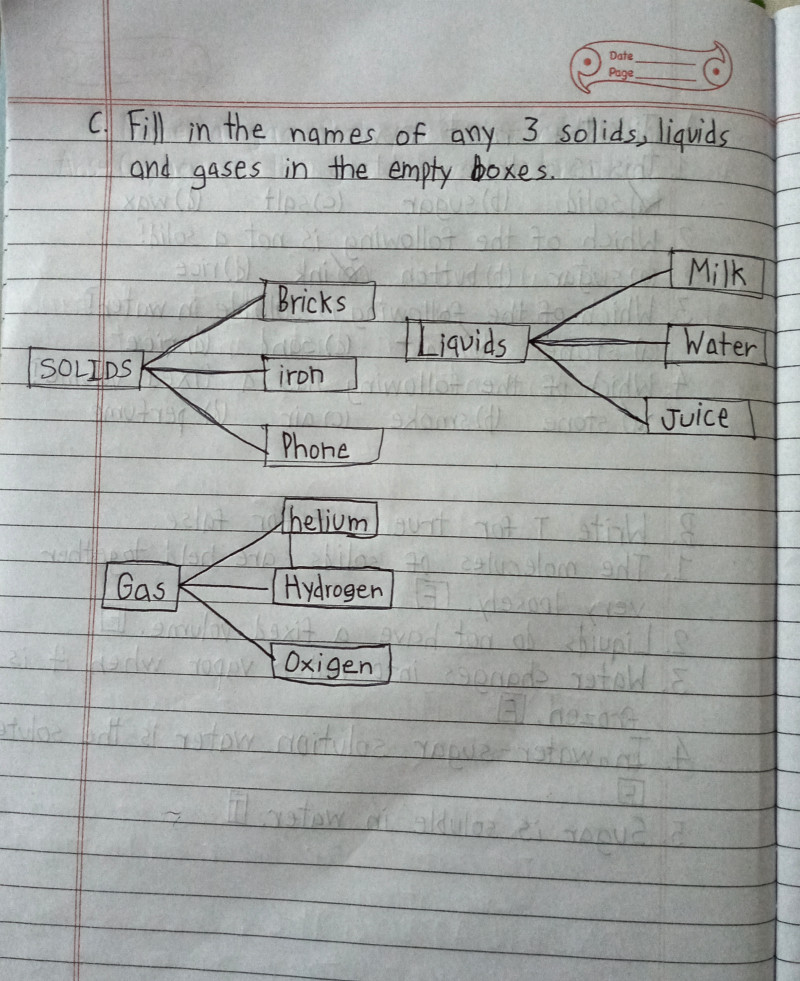 Date
Page
C. Fill in the names of any 3 solids, liquids
and gases in the empty boxes.
SOLIDS
Bricks
iron
Phone
Liquids
Milk
Water
Juice
Gas
helium
Hydrogen
Oxigen